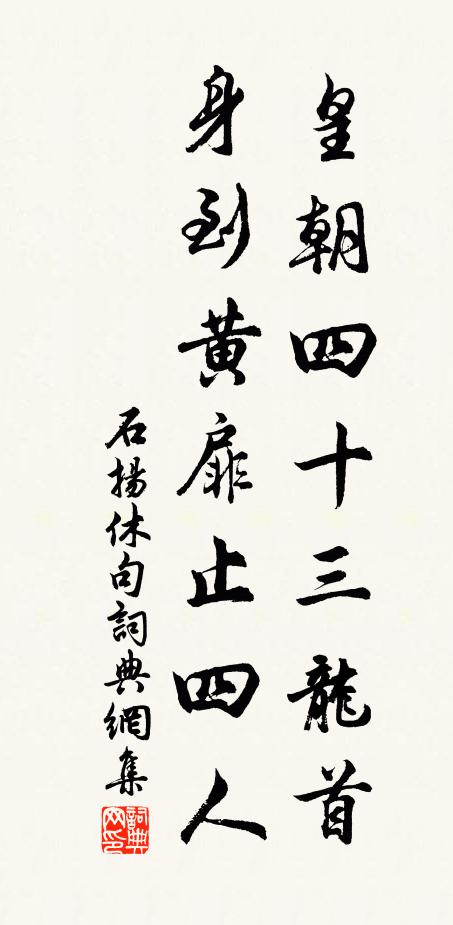 皇朝四十三龍首
身到黃扉止四人
石揚休句詞典網集
詞典
网印